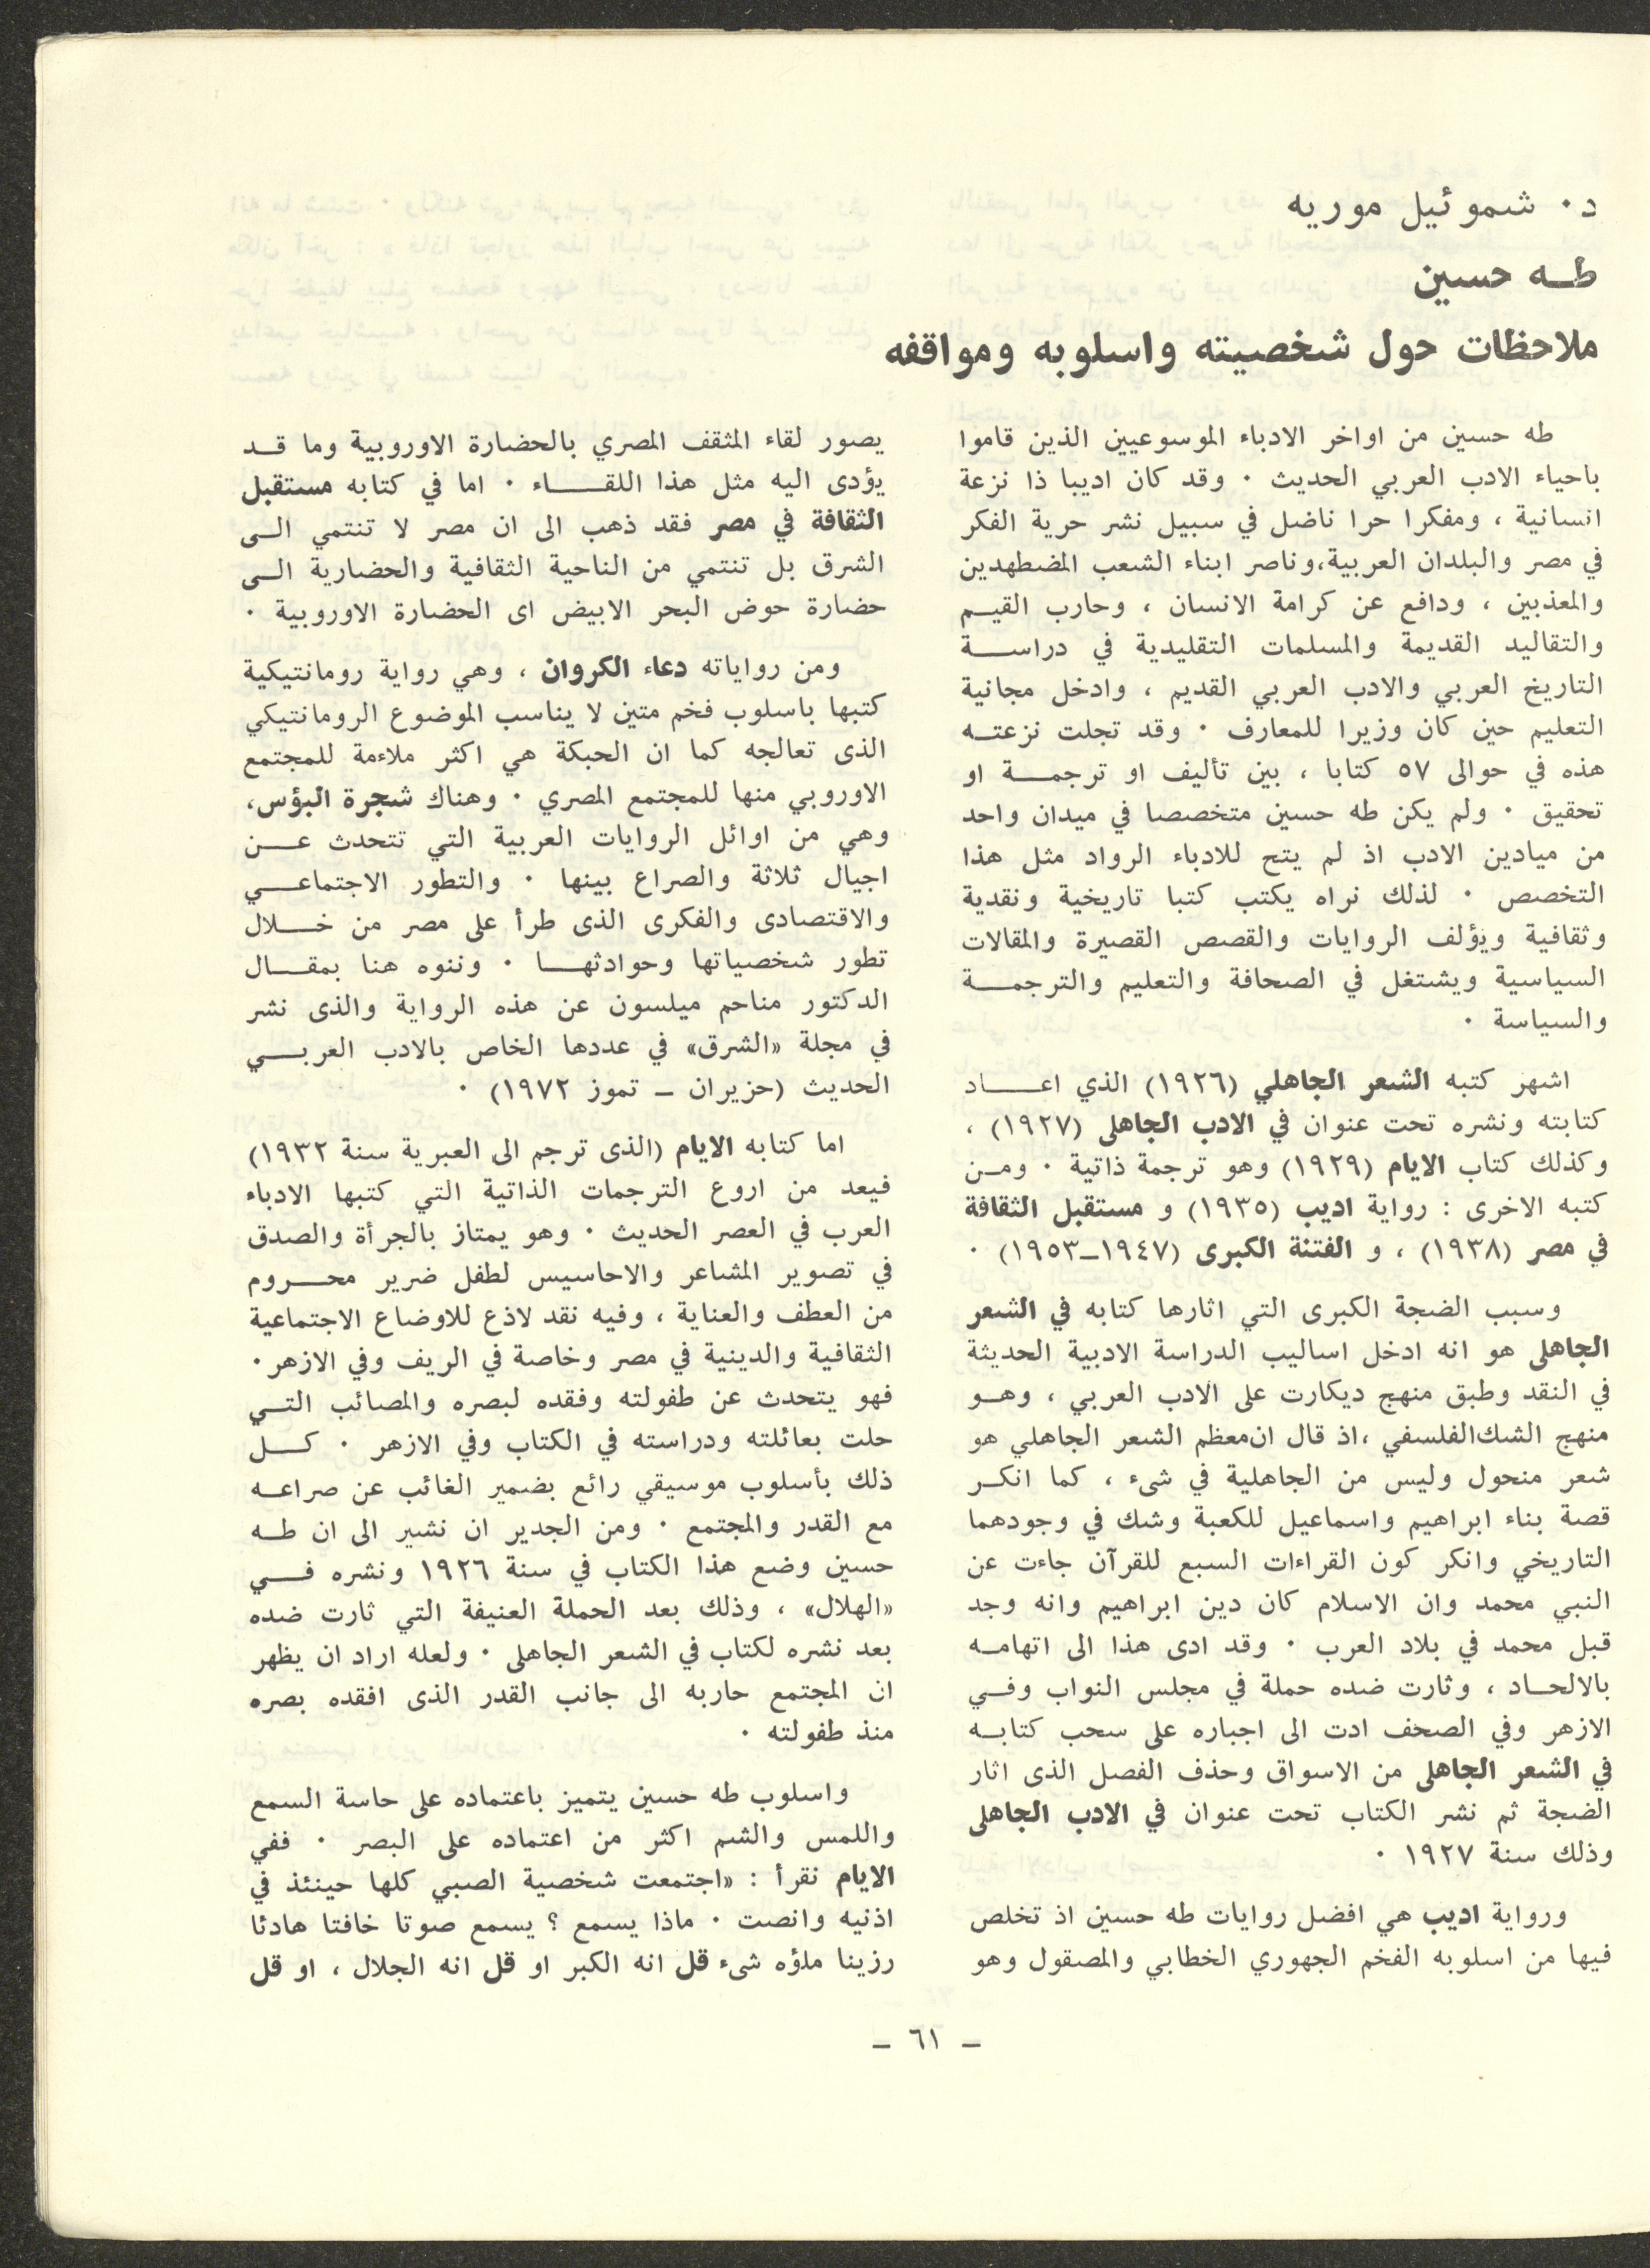 د. شموئيل موريه
طه حسين
ملاحظات حول شخصيته واسلوبه ومواقفه
طه حسين من اواخر الادباء الموسوعيين الذين قاموا
باحياء الادب العربي الحديث . وقد كان اديبا ذا نزعة
انسانية ، ومفكرا حرا ناضل في سبيل نشر حرية الفكر
في مصر والبلدان العربية، وناصر ابناء الشعب المضطهدين
والمعذبين ، ودافع عن كرامة الانسان ، وحارب القيم
والتقاليد القديمة والمسلمات التقليدية في دراسة
التاريخ العربي والادب العربي القديم ، وادخل مجانية
التعليم حين كان وزيرا للمعارف . وقد تجلت نزعته
هذه في حوالى ٥٧ كتابا ، بين تأليف او ترجمة او
تحقيق . ولم يكن طه حسين متخصصا في ميدان واحد
من ميادين الادب اذ لم يتح للادباء الرواد مثل هذا
التخصص . لذلك نراه يكتب كتبا تاريخية ونقدية
وثقافية ويؤلف الروايات والقصص القصيرة والمقالات
السياسية ويشتغل في الصحافة والتعليم والترجمة
والسياسة .
اشهر كتبه الشعر الجاهلي (١٩٢٦) الذي اعاد
كتابته ونشره تحت عنوان في الادب الجاهلى (١٩٢٧) ،
وكذلك كتاب الايام (١٩٢٩) وهو ترجمة ذاتية . ومن
كتبه الاخرى : رواية اديب (١٩٣٥) و مستقبل الثقافة
في مصر (١٩٣٨) ، و الفتنة الكبرى (١٩٤٧–١٩٥٣) .
وسبب الضجة الكبرى التي اثارها كتابه في الشعر
الجاهلى هو انه ادخل اساليب الدراسة الادبية الحديثة
في النقد وطبق منهج ديكارت على الادب العربي ، وهو
منهج الشك الفلسفي ،اذ قال ان معظم الشعر الجاهلي هو
شعر منحول وليس من الجاهلية في شىء ، كما انكر
قصة بناء ابراهيم واسماعيل للكعبة وشك في وجودهما
التاريخي وانكر كون القراءات السبع للقرآن جاءت عن
النبي محمد وان الاسلام كان دين ابراهيم وانه وجد
قبل محمد في بلاد العرب . وقد ادى هذا الى اتهامه
بالالحاد ، وثارت ضده حملة في مجلس النواب وفي
الازهر وفي الصحف ادت الى اجباره على سحب كتابه
في الشعر الجاهلى من الاسواق وحذف الفصل الذى اثار
الضجة ثم نشر الكتاب تحت عنوان في الادب الجاهلى
وذلك سنة ١٩٢٧ .
ورواية اديب هي افضل روايات طه حسين اذ تخلص
فيها من اسلوبه الفخم الجهوري الخطابي والمصقول وهو
يصور لقاء المثقف المصري بالحضارة الاوروبية وما قد
يؤدى اليه مثل هذا اللقاء . اما في كتابه مستقبل
الثقافة في مصر فقد ذهب الى ان مصر لا تنتمي الى
الشرق بل تنتمي من الناحية الثقافية والحضارية الى
حضارة حوض البحر الابيض اى الحضارة الاوروبية .
ومن رواياته دعاء الكروان ، وهي رواية رومانتيكية
كتبها باسلوب فخم متين لا يناسب الموضوع الرومانتيكي
الذى تعالجه كما ان الحبكة هي اكثر ملاءمة للمجتمع
الاوروبي منها للمجتمع المصري . وهناك شجرة البؤس،
وهي من اوائل الروايات العربية التي تتحدث عن
اجيال ثلاثة والصراع بينها . والتطور الاجتماعي
والاقتصادى والفكرى الذى طرأ على مصر من خلال
تطور شخصياتها وحوادثها . وننوه هنا بمقال
الدكتور مناحم ميلسون عن هذه الرواية والذى نشر
في مجلة «الشرق» في عددها الخاص بالادب العربي
الحديث (حزيران – تموز ١٩٧٢) .
اما كتابه الايام (الذى ترجم الى العبرية سنة ١٩٣٢)
فيعد من اروع الترجمات الذاتية التي كتبها الادباء
العرب في العصر الحديث . وهو يمتاز بالجرأة والصدق
في تصوير المشاعر والاحاسيس لطفل ضرير محروم
من العطف والعناية ، وفيه نقد لاذع للاوضاع الاجتماعية
الثقافية والدينية في مصر وخاصة في الريف وفي الازهر.
فهو يتحدث عن طفولته وفقده لبصره والمصائب التي
حلت بعائلته ودراسته في الكتاب وفي الازهر . كل
ذلك بأسلوب موسيقي رائع بضمير الغائب عن صراعه
مع القدر والمجتمع . ومن الجدير ان نشير الى ان طه
حسين وضع هذا الكتاب في سنة ١٩٢٦ ونشره في
«الهلال» ، وذلك بعد الحملة العنيفة التي ثارت ضده
بعد نشره لكتاب في الشعر الجاهلى . ولعله اراد ان يظهر
ان المجتمع حاربه الى جانب القدر الذى افقده بصره
منذ طفولته .
واسلوب طه حسين يتميز باعتماده على حاسة السمع
واللمس والشم اكثر من اعتماده على البصر . ففي
الايام نقرأ : «اجتمعت شخصية الصبي كلها حينئذ في
اذنيه وانصت . ماذا يسمع ؟ يسمع صوتا خافتا هادئا
رزينا ملؤه شىء قل انه الكبر او قل انه الجلال ، او قل
– ٦١ –